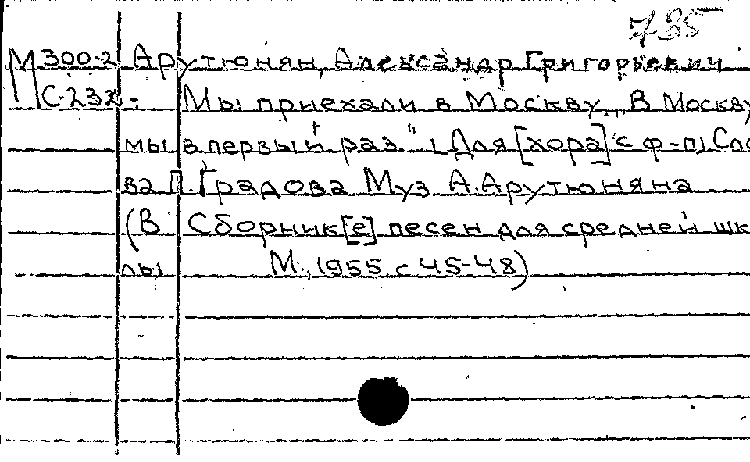 735
М 300-2 Арутюнян, Александр Григорьевич
С-232. Мы приехали в Москву. „В Москву
мы в первый раз." [Для [хора] с ф-п] Сло
ва П. Градова Муз А. Арутюняна
(В Сборник[е] песен для средней шко
лы М., 1955 с 45-48)